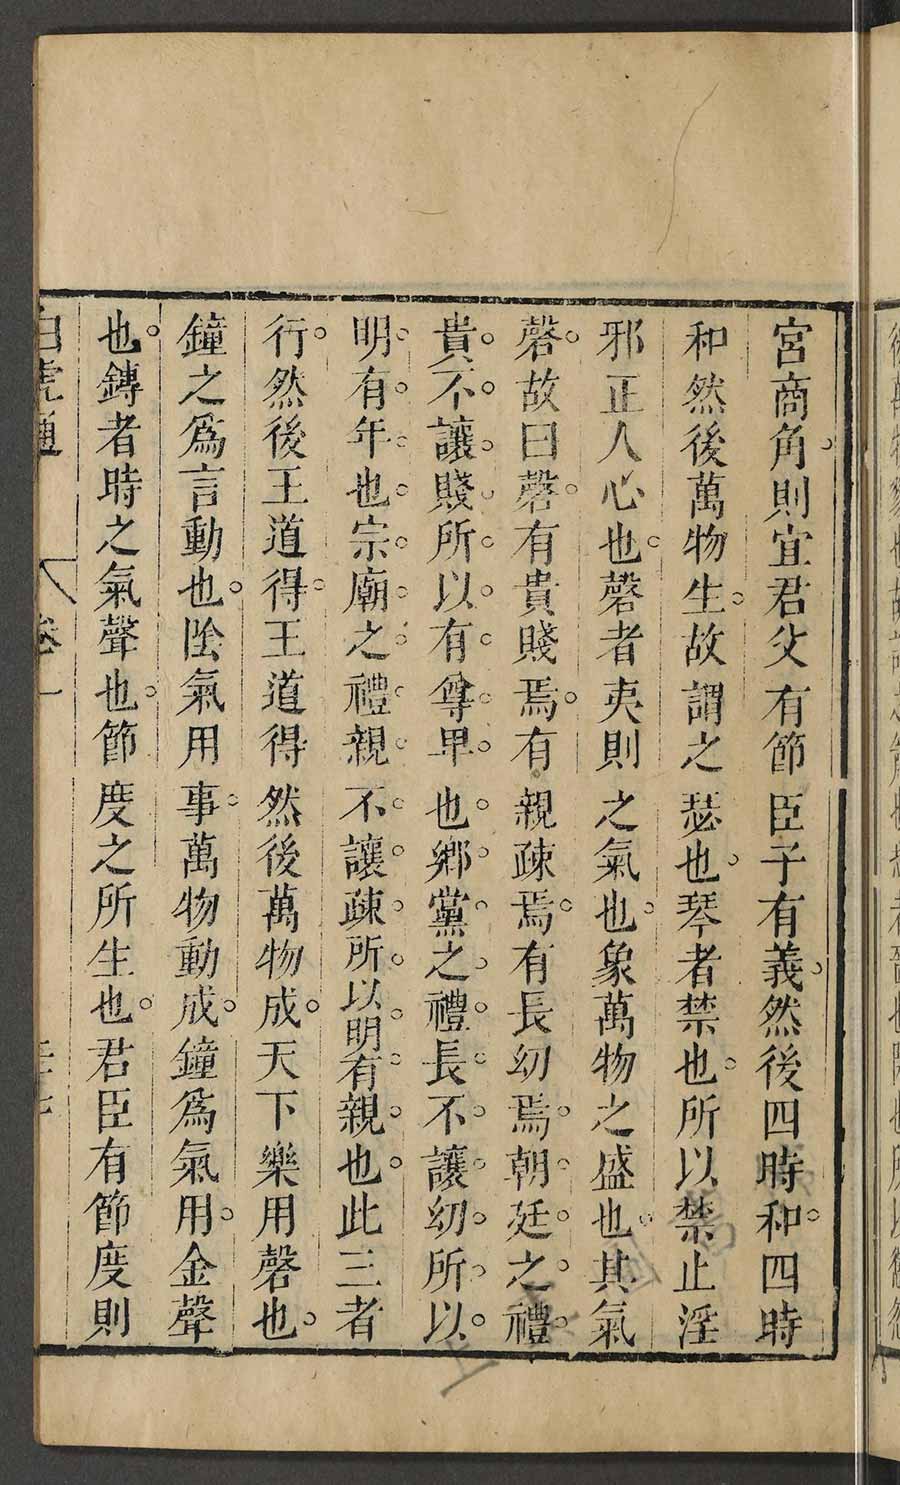 宮商角則宜君父有節臣子有義然後四時和四時
和然後萬物生故謂之瑟也琴者禁也所以禁止淫
邪正人心也磬者夷則之氣也象萬物之盛也其氣
磬故曰磬有貴賤焉有親疎焉有長幼焉朝廷之禮
貴不讓賤所以有尊卑也鄉黨之禮長不讓幼所以
明有年也宗廟之禮親不讓疎所以明有親也此三者
行然後王道得王道得然後萬物成天下樂用磬也
鐘之爲言動也陰氣用事萬物動成鐘爲氣用金聲
也鎛者時之氣聲也節度之所生也君臣有節度則
白虎通 卷一